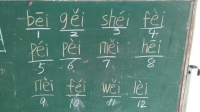 bēi gěi shéi fèi
1 2 3 4
péi pèi mèi hēi
5 6 7 8
nèi féi wěi lèi
9 10 11 12